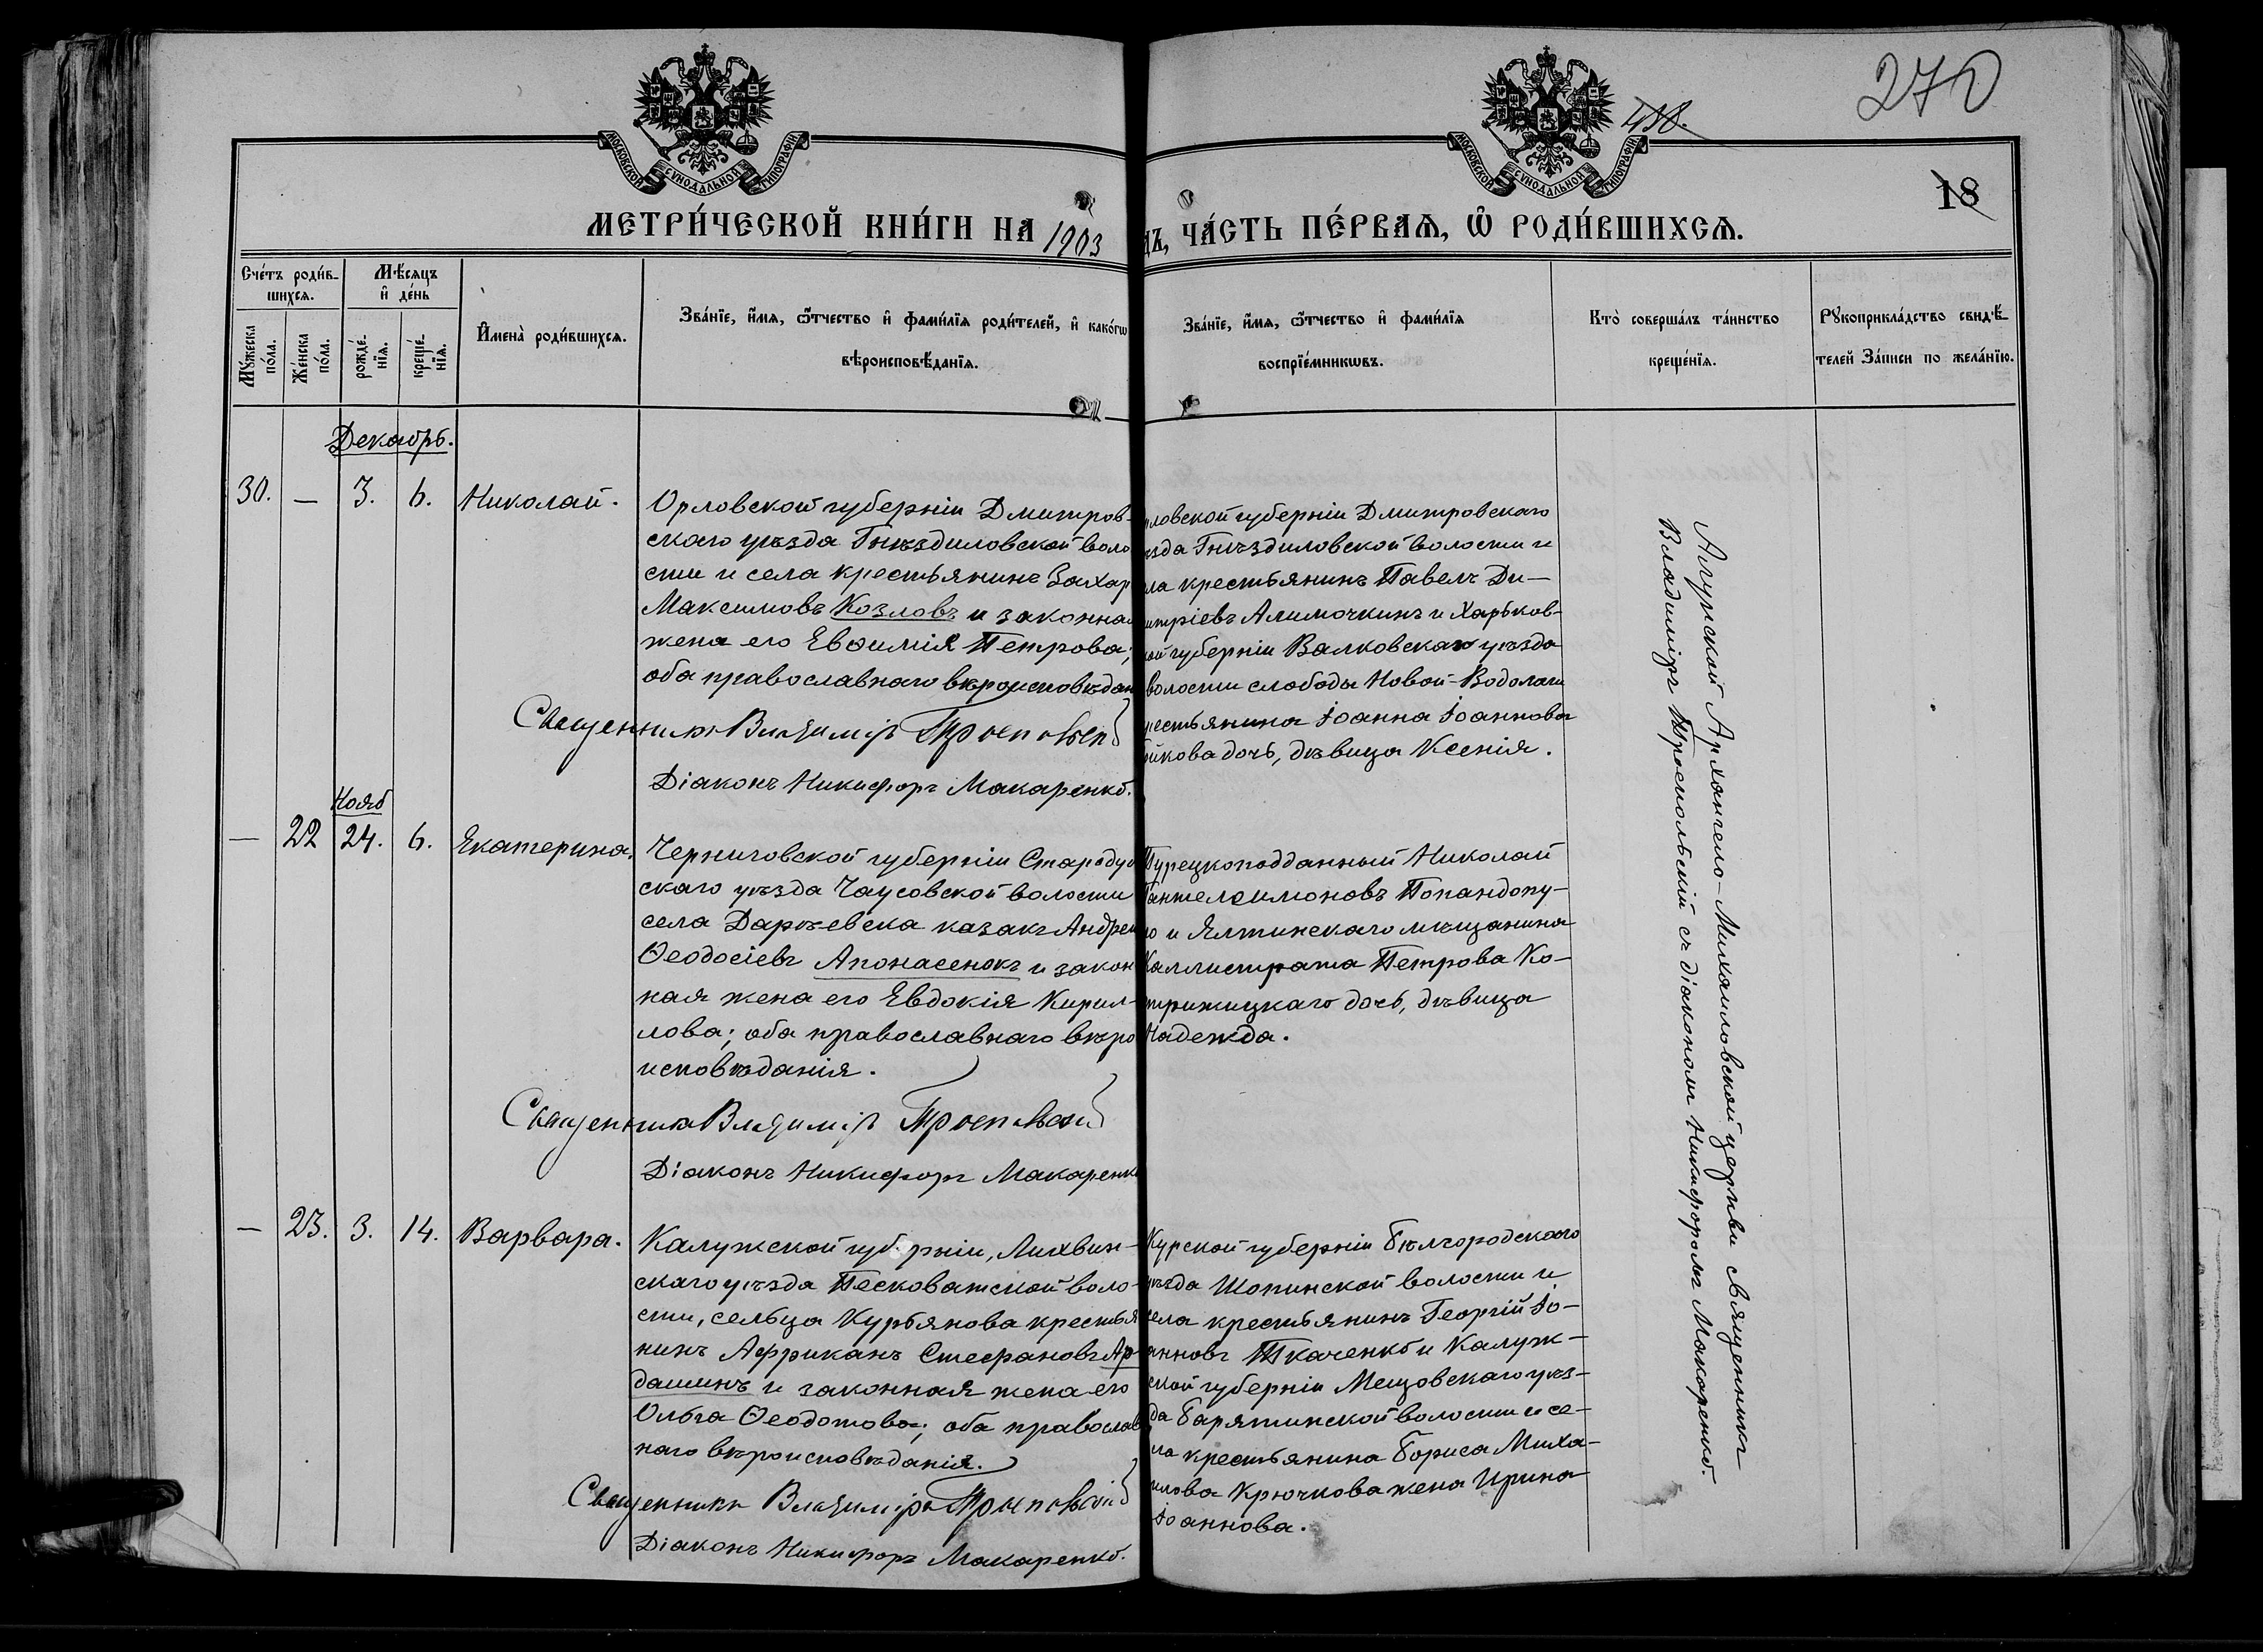 270
488.
18
МОСКОВСКОЙ СѴНОДАЛЬНОЙ ТИПОГРАФІИ
МОСКОВСКОЙ СѴНОДАЛЬНОЙ ТИПОГРАФІИ
МЕТРИ́ЧЕСКОЙ КНИ́ГИ НА 1903
ДЪ, ЧА́СТЬ ПЕ́РВАѦ, Ѡ РОДИ́ВШИХСѦ.
Сче́тъ роди́в-
шихсѧ.
Мѣ́сѧцъ
и҆ де́нь
Мꙋ́жеска
по́ла.
Же́нска
по́ла.
рожде́-
нїѧ.
креще́-
нїѧ.
И҆мена̀ роди́вшихсѧ.
Зва́нїе, и҆́мѧ, ѻ҆́тчество и҆ фами́лїѧ роди́телей, и҆ како́гѡ
вѣроисповѣ́данїѧ.
Зва́нїе, и҆́мѧ, ѻ҆́тчество и҆ фами́лїѧ
воспрїе́мникѡвъ.
Кто̀ соверша́лъ та́инство
креще́нїѧ.
Рꙋкоприкла́дство свидѣ́-
телей За́писи по жела́нїю.
Декабрь.
30. — 3. 6. Николай.
Орловской губерніи Дмитров-
скаго уѣзда Гнѣздиловской воло
сти и села крестьянинъ Захар
Максимовъ Козловъ и законная
жена его Евѳимія Петрова;
оба православнаго вѣроисповѣдан
Священникъ Владиміръ Троепольскій
Діаконъ Никифоръ Макаренко.
рловской губерніи Дмитровскаго
ѣзда Гнѣздиловской волости и
ла крестьянинъ Павелъ Ди-
итріевъ Алимочкинъ и Харьков-
кой губерніи Валковскаго уѣзда
волости слободы Новой-Водолаги
рестьянина Іоанна Іоаннова
йкова дочь, дѣвица Ксенія.
Нояб
— 22 24. 6. Екатерина.
Черниговской губерніи Стародуб
скаго уѣзда Чаусовской волости
села Даръевска казакъ Андрей
Ѳеодосіевъ Апонасенокъ и закон
ная жена его Евдокія Кирил-
лова; оба православнаго вѣро
исповѣданія.
Священникъ Владиміръ Троепольскій
Діаконъ Никифоръ Макаренк
Турецкоподданный Николай
Пантелеимоновъ Попандопу-
ло и Ялтинскаго мѣщанина
Каллистрата Петрова Ко-
трижицкаго дочь, дѣвица
Надежда.
— 23. 3. 14. Варвара.
Калужской губерніи, Лихвин-
скаго уѣзда Песковатской воло-
сти, сельца Курьянова крестья
нинъ Аффриканъ Стефановъ Ар-
дашинъ и законная жена его
Ольга Ѳеодотова; оба православ
наго вѣроисповѣданія.
Священникъ Владиміръ Троепольскій
Діаконъ Никифоръ Макаренко.
Курской губерніи Бѣлгородскаго
уѣзда Шопинской волости и
села крестьянинъ Георгій Іо-
анновъ Ткаченко и Калуж-
ской губерніи Мещовскаго уѣз-
да Барятинской волости и се-
ла крестьянина Бориса Миха-
илова Крючкова жена Ирина
Іоаннова.
Агурской Архангело-Михаиловской церкви священникъ
Владиміръ Троепольскій съ діакономъ Никифоромъ Макаренко.